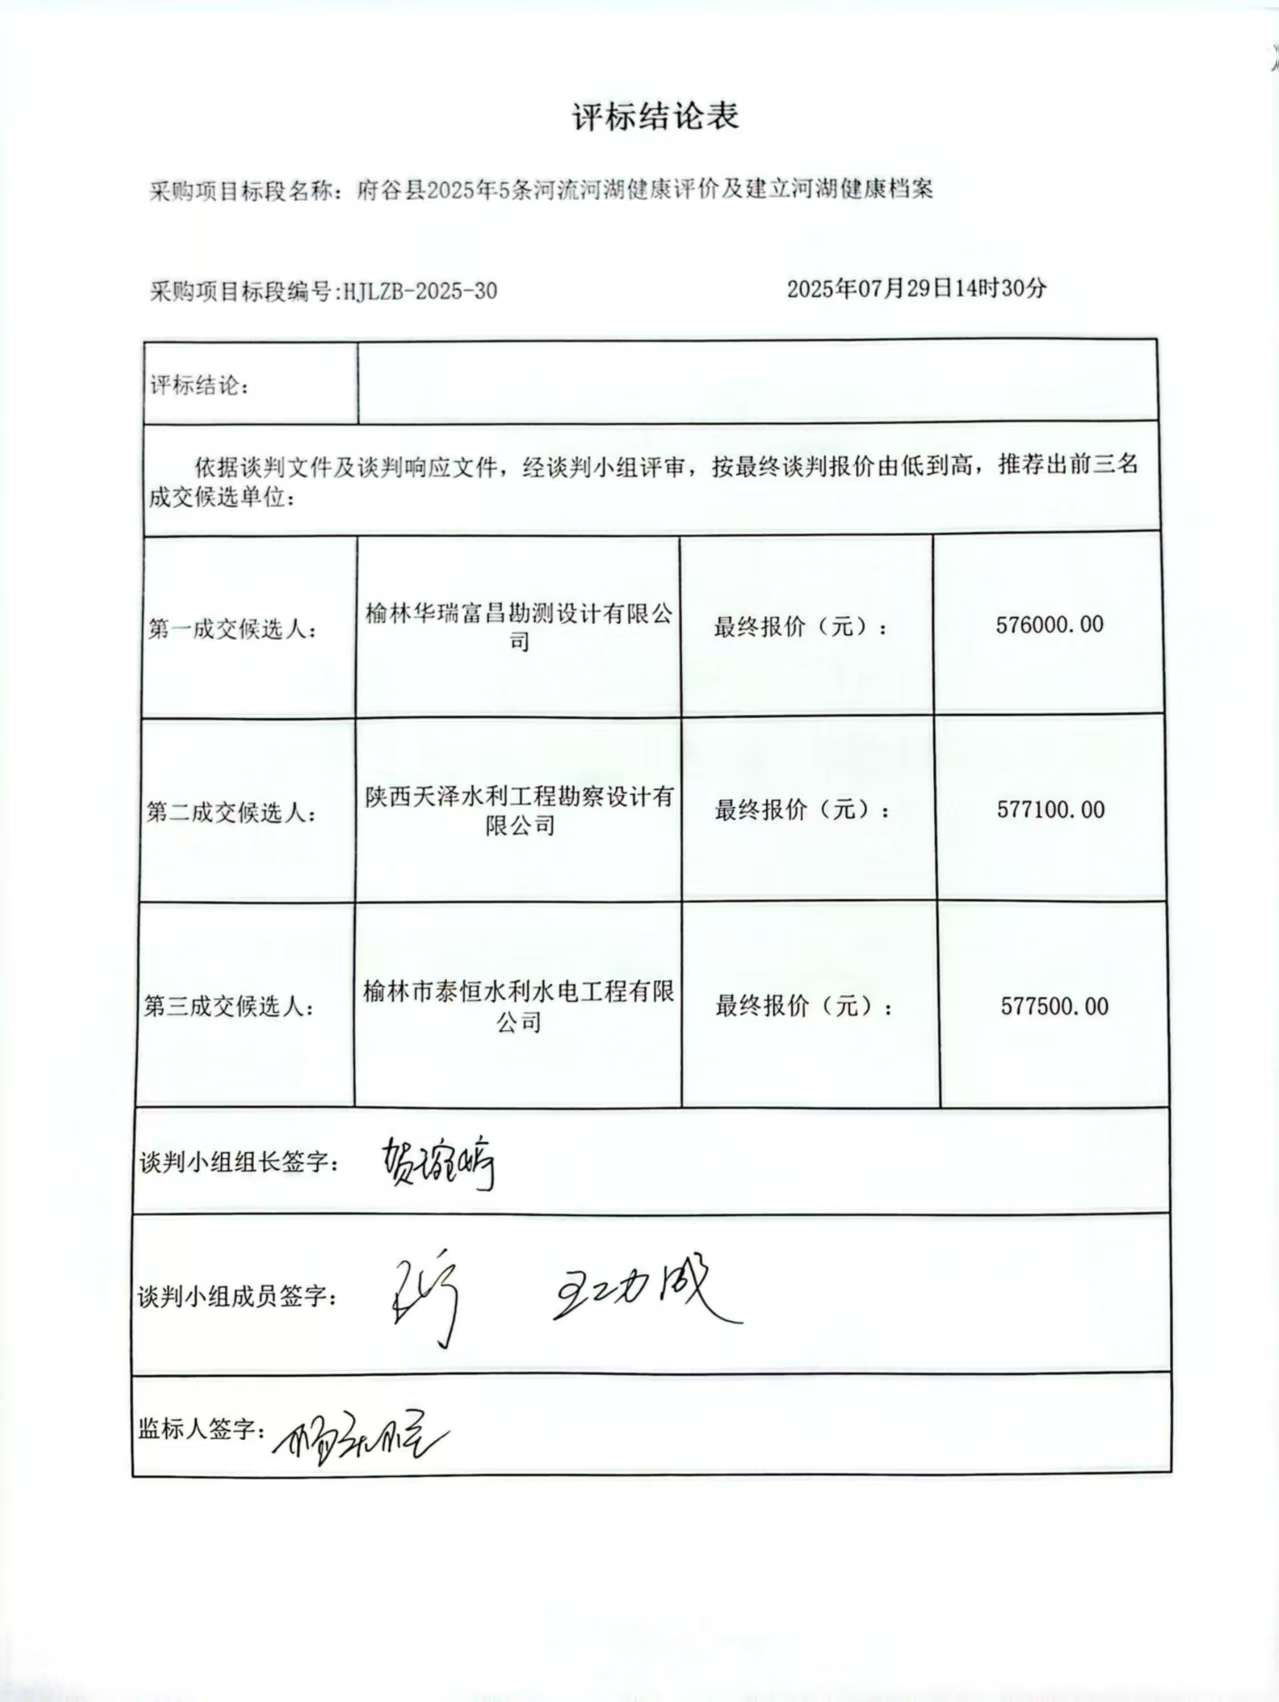 评标结论表
采购项目标段名称：府谷县2025年5条河流河湖健康评价及建立河湖健康档案
采购项目标段编号:HJLZB-2025-30 2025年07月29日14时30分
评标结论：
依据谈判文件及谈判响应文件，经谈判小组评审，按最终谈判报价由低到高，推荐出前三名
成交候选单位：
第一成交候选人： 榆林华瑞富昌勘测设计有限公
司 最终报价（元）： 576000.00
第二成交候选人： 陕西天泽水利工程勘察设计有
限公司 最终报价（元）： 577100.00
第三成交候选人： 榆林市泰恒水利水电工程有限
公司 最终报价（元）： 577500.00
谈判小组组长签字：
谈判小组成员签字： 王功成
监标人签字：